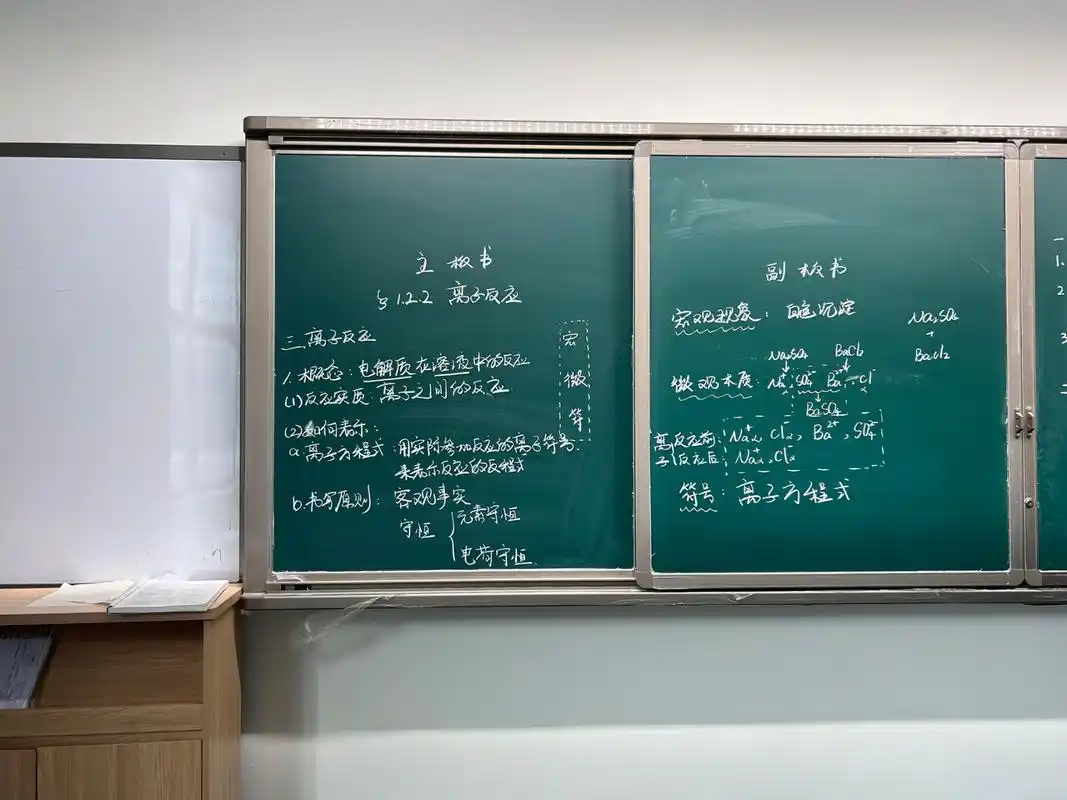 主板书
§1.2.2 离子反应
三、离子反应
1. 概念：电解质在溶液中的反应
(1)反应实质：离子之间的反应
(2)如何表示：
a.离子方程式：用实际参加反应的离子符号.
来表示反应的反程式
b.书写原则：客观事实
守恒
元素守恒
电荷守恒
宏
微
符
副板书
宏观现象：白色沉淀
Na₂SO₄
+
BaCl₂
Na₂SO₄ BaCl₂
微观本质：Na⁺ SO₄²⁻ Ba²⁺ Cl⁻
BaSO₄
离子
反应前：Na⁺、Cl⁻、Ba²⁺、SO₄²⁻
反应后：Na⁺、Cl⁻
符号：离子方程式
1.
2